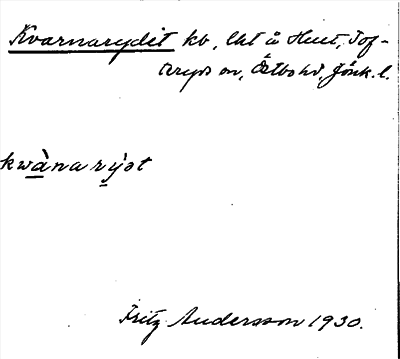 Kvarnarydet kb, lht å Hult, Tof-
teryds sn, Östbo hd, Jönk. l.
kwànarỳət
Fritz Andersson 1930.